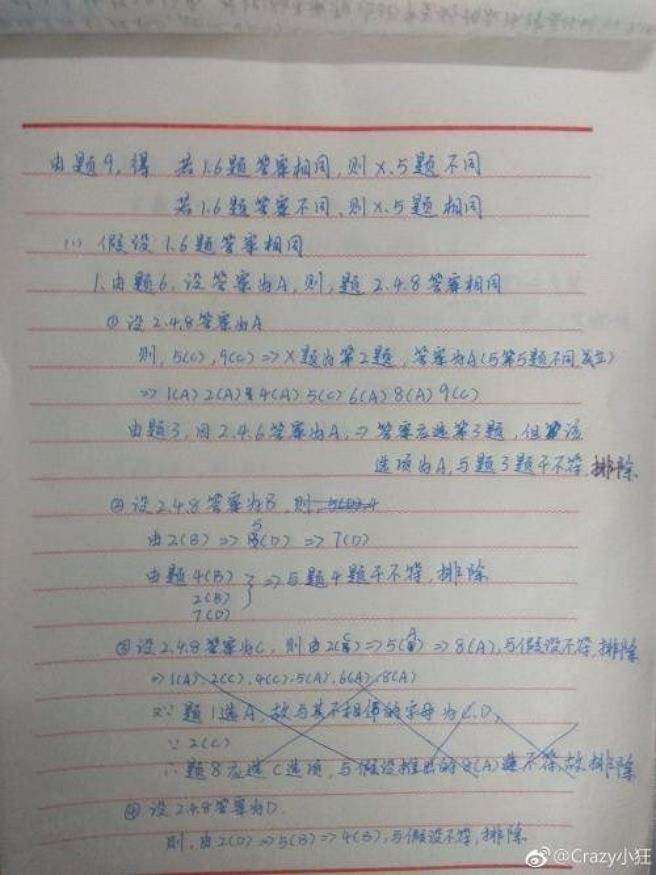 由题9,得 若1.6题答案相同,则X.5题不同
若1.6题答案不同,则X.5题相同
(1) 假设1.6题答案相同
1.由题6,设答案为A,则,题2.4.8答案相同
① 设2.4.8答案为A
则,5(C),9(C)=>X题为第2题,答案为A(与第5题不同成立)
=>1(A)2(A)4(A)5(C)6(A)8(A)9(C)
由题3,因2.4.6答案为A,=>答案应选第3题,但该
选项为A,与题3题干不符,排除
② 设2.4.8答案为B,则
由2(B)=>5(D)=>7(D)
由题4(B)
2(B)
7(D)
=>与题4题干不符,排除
③设2.4.8答案为C,则由2(C)=>5(A)=>8(A),与假设不符,排除
=>1(A).2(C).4(C).5(A).6(A).8(A)
又∵题1选A,故与其不相邻的字母为C.D,
∵2(C)
∴题8应选C选项,与假设推出的8(A)不符,故排除
④ 设2.4.8答案为D.
则,由2(D)=>5(B)=>4(B),与假设不符,排除
@Crazy小狂